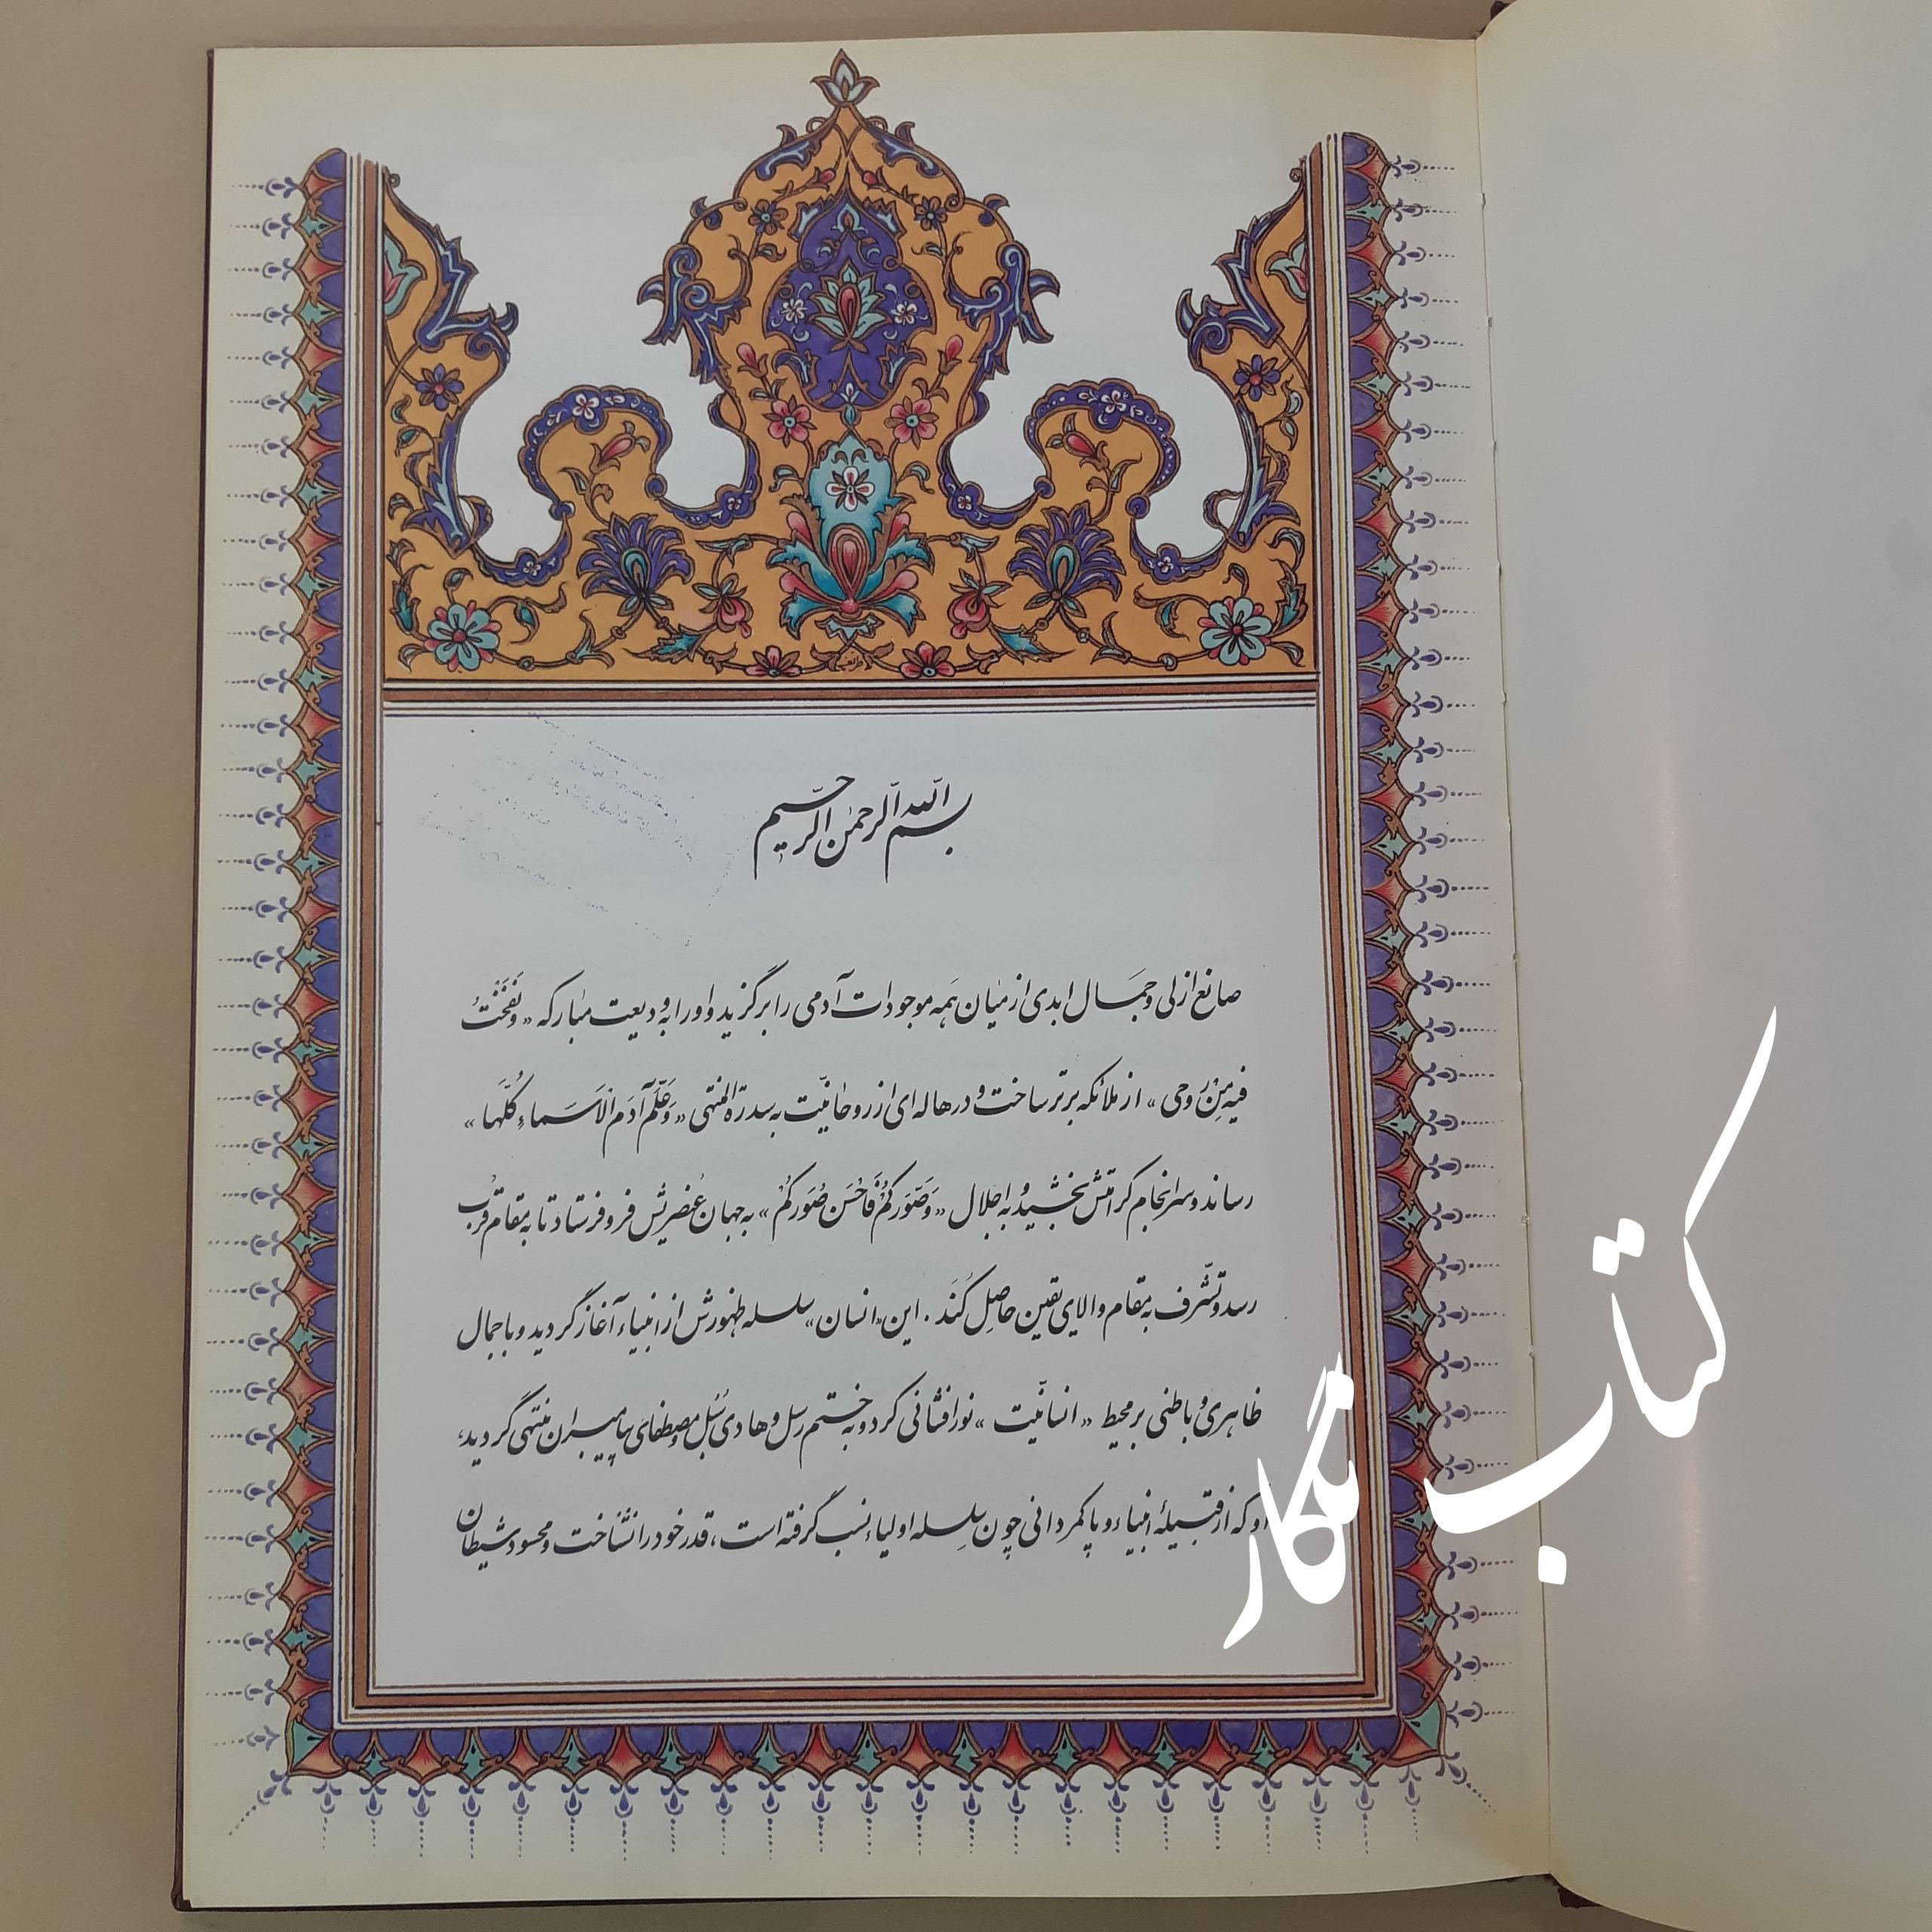 بسم الله الرحمن الرحیم
صانع ازلی و جمال ابدی از میان همه موجودات آدمی را برگزید و او را به ودیعت مبارکه «وَنَفَخْتُ
فیهِ مِنْ رُوحی» از ملائکه برتر ساخت و در هاله‌ای از روحانیّت به سدرة المنتهی «وَعَلَّمَ آدَمَ الْاَسْماءَ کُلَّها»
رساند و سرانجام کرامتش بخشید و به اجلال «وَصَوَّرَکُمْ فَاَحْسَنَ صُوَرَکُمْ» به جهان عُنصریش فرو فرستاد تا به مقام قُرب
رسد و تشّرف به مقام والای یقین حاصِل کُنَد. این «انسان» سلسله ظهورش از انبیاء آغاز گردید و با جمال
ظاهری و باطنی بر محیط «انسانیّت» نورافشانی کرد و به ختم رسل و هادی سُبُل و مصطفای پیامبران منتهی گردید،
او که از قبیلهٔ انبیاء و پا کمردانی چون سِلسله اولیاء نسب گرفته است، قدر خود را نشناخت و محسود شیطان
کتاب نگار